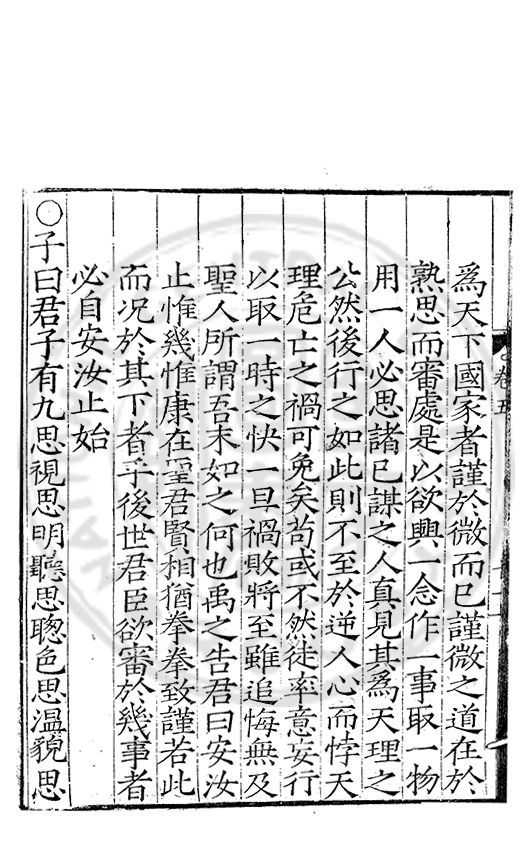 爲天下國家者謹於微而已謹微之道在於
熟思而審處是以欲興一念作一事取一物
用一人必思諸已謀之人真見其爲天理之
公然後行之如此則不至於逆人心而悖天
理危亡之禍可免矣苟或不然徒率意妄行
以取一時之快一旦禍敗將至雖追悔無及
聖人所謂吾末如之何也禹之告君曰安汝
止惟幾惟康在聖君賢相猶拳拳致謹若此
而况於其下者乎後世君臣欲審於幾事者
必自安汝止始
○子曰君子有九思視思明聽思聰色思溫貌思
卷五